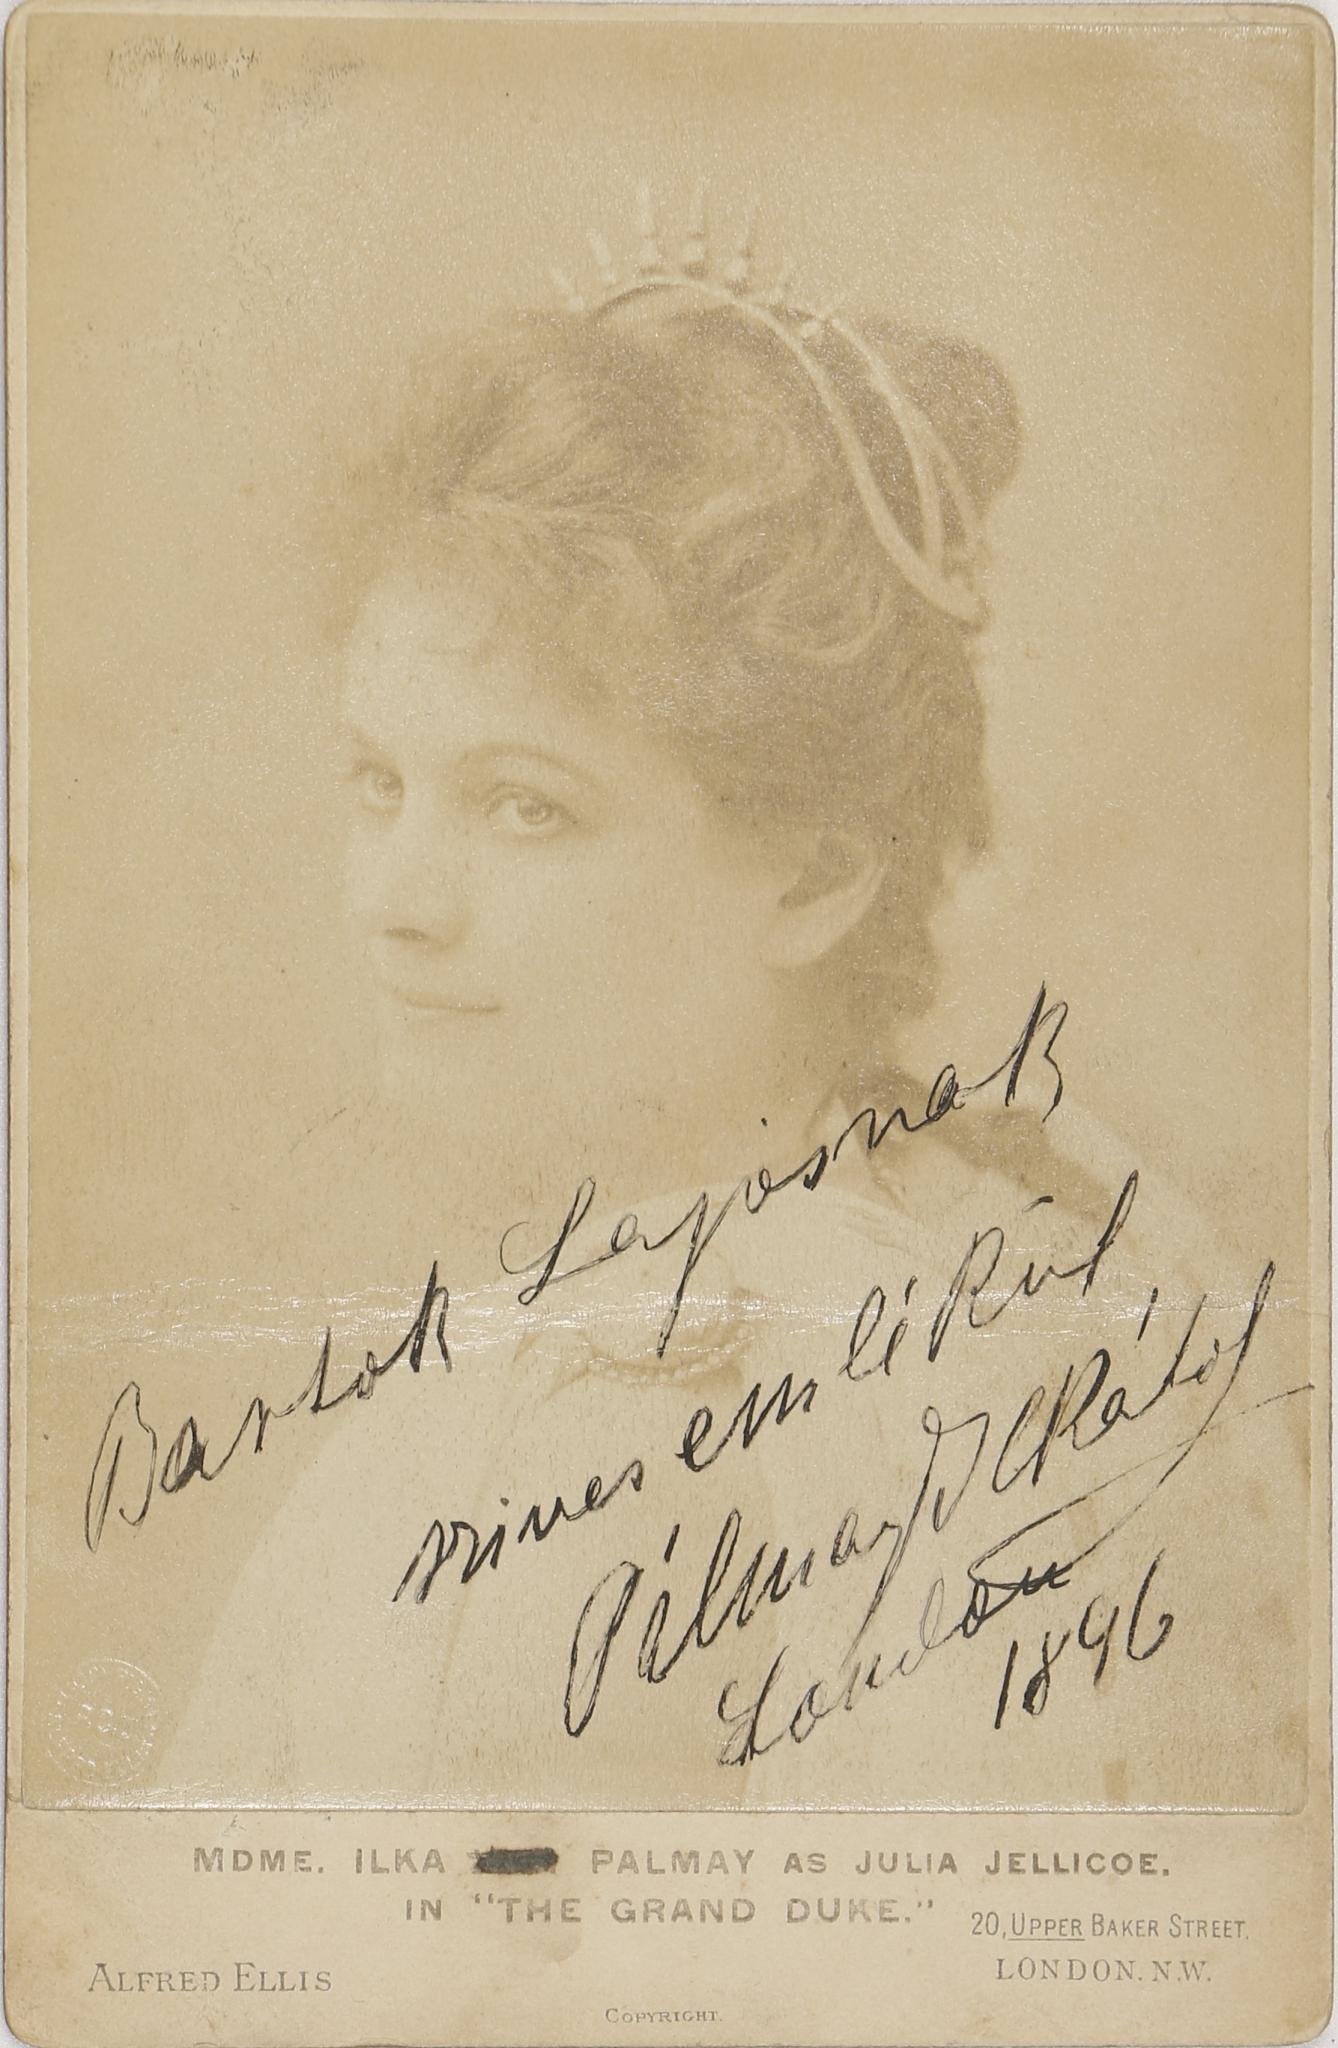 Bartok Lajosnak
szives emlékül
Pálmay Ilkától
London
1896
MDME. ILKA PALMAY AS JULIA JELLICOE.
IN "THE GRAND DUKE."
20, UPPER BAKER STREET.
ALFRED ELLIS
LONDON. N.W.
COPYRIGHT.